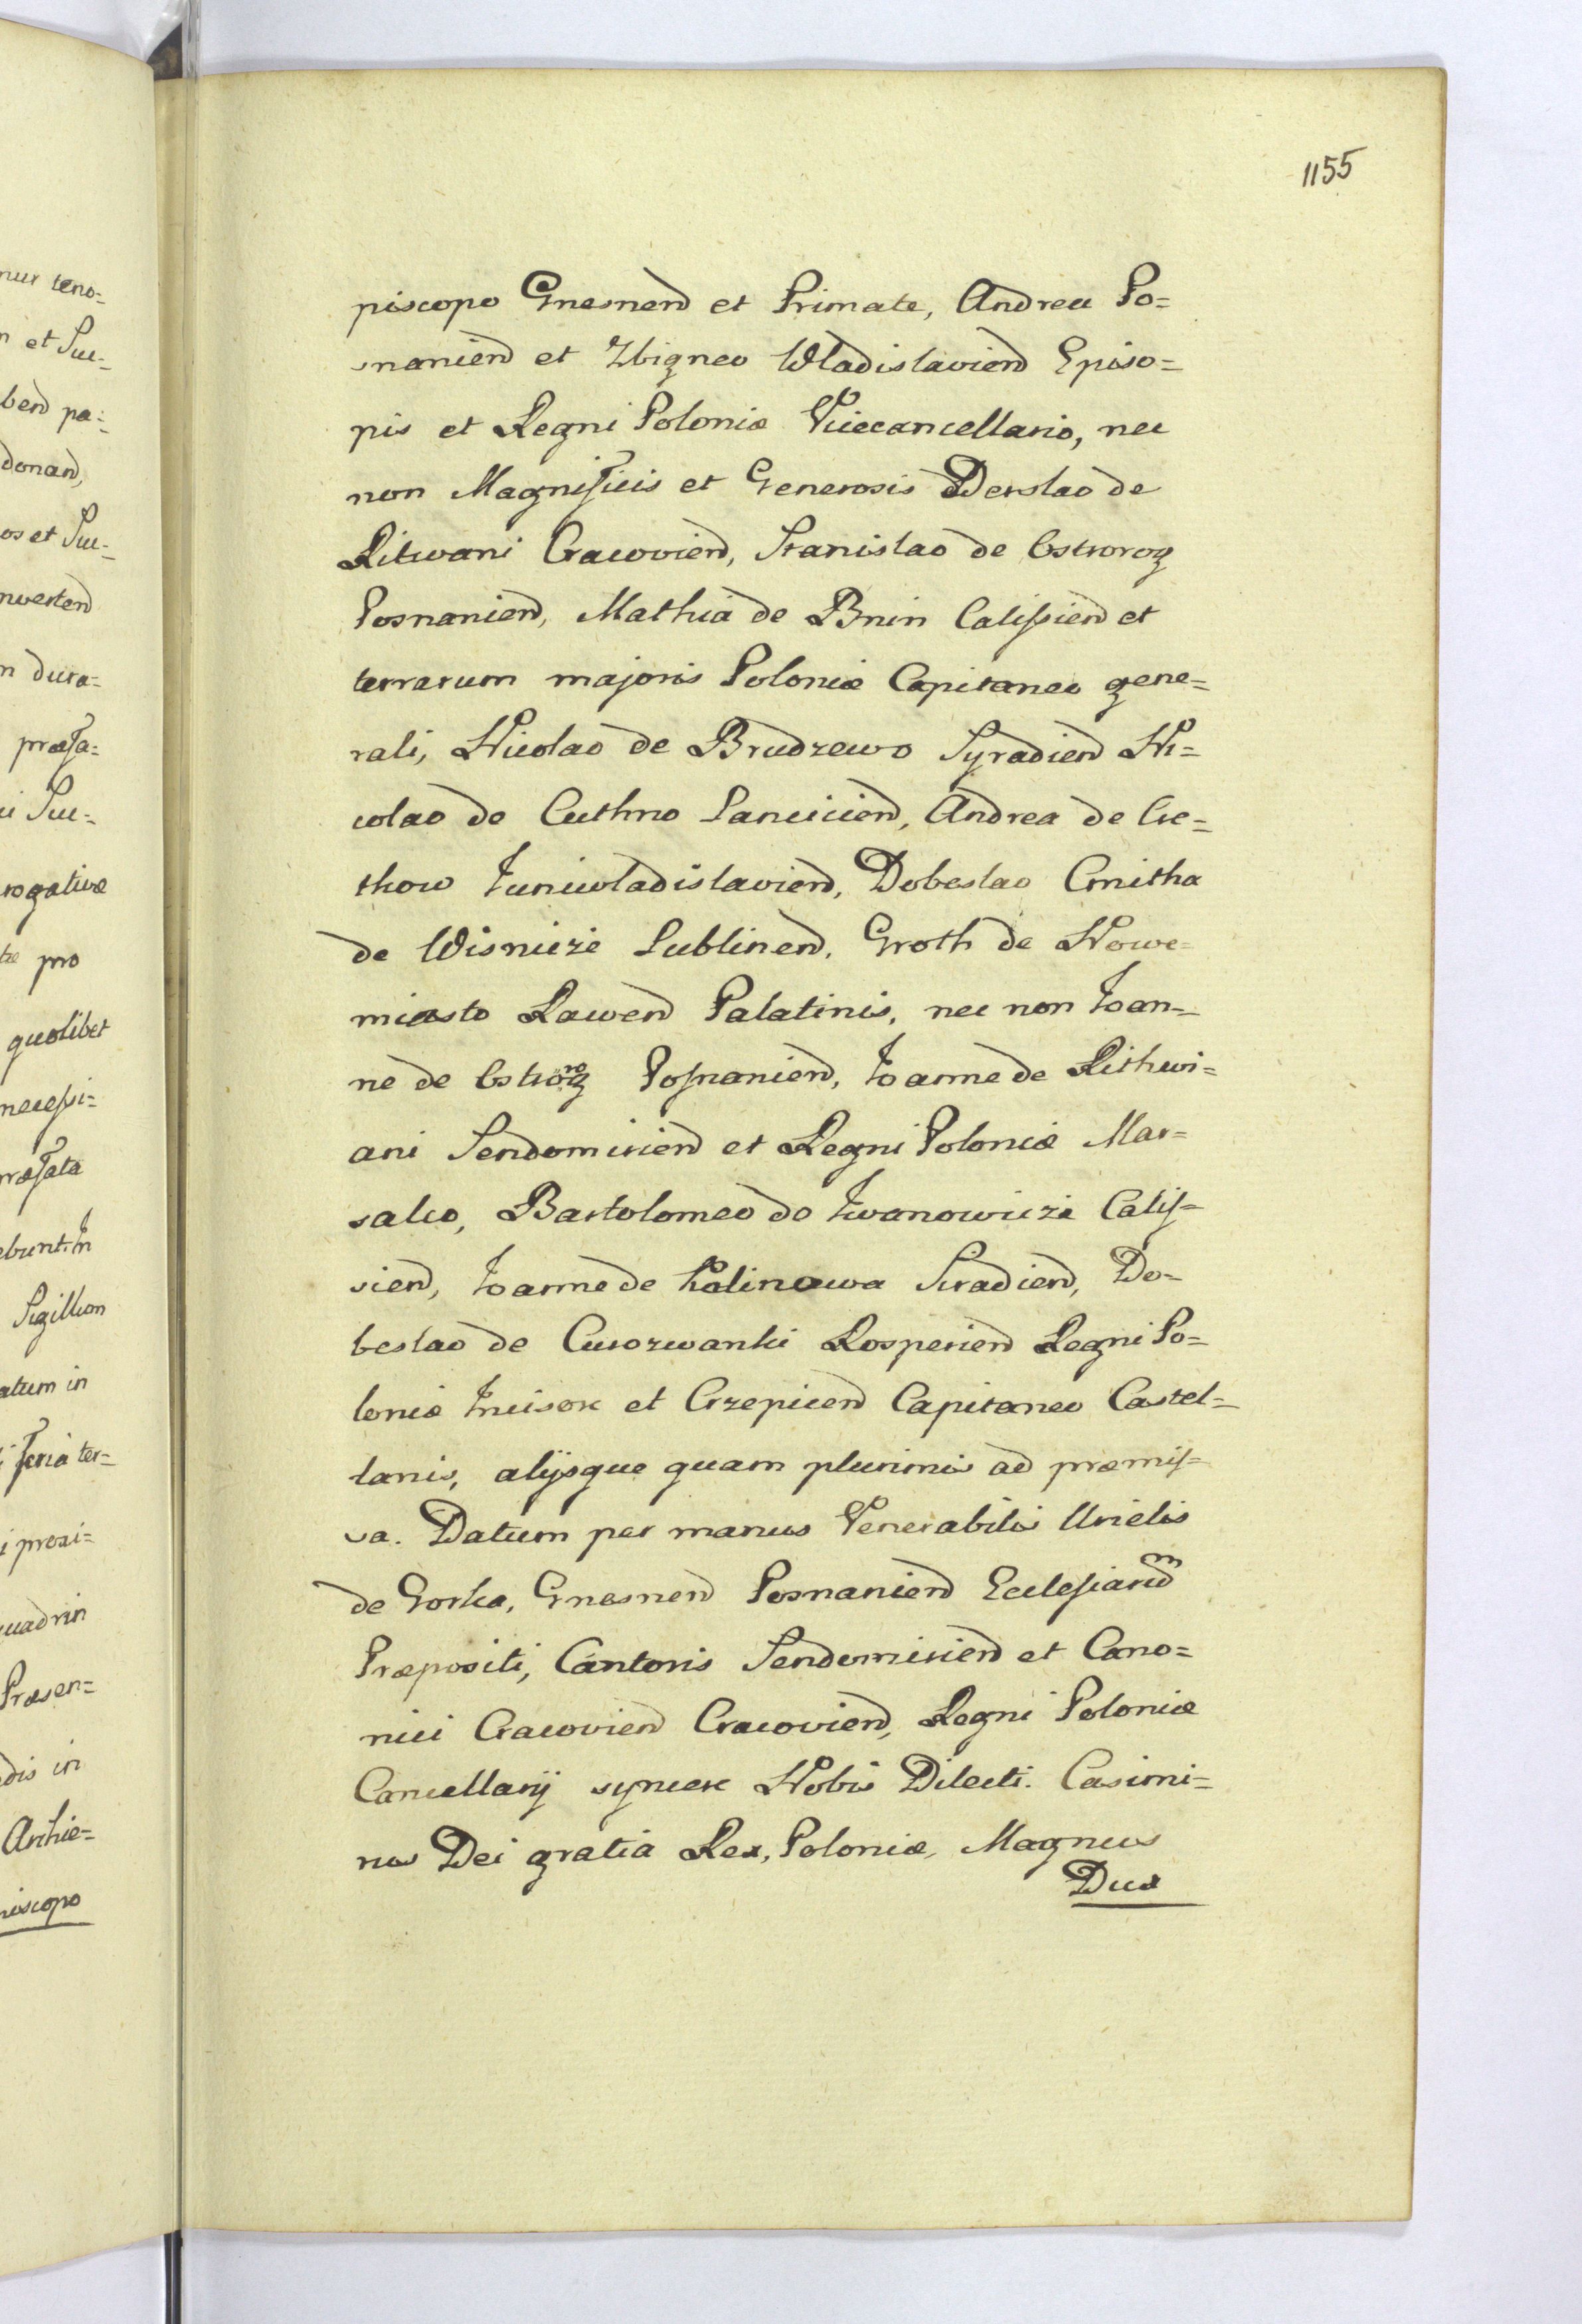 1155
piscopo Gnesnen et Primate, Andrea Po=
snanien et Zbigneo Wladislavien Episo=
pis et Regni Poloniæ Vicecancellario, nec
non Magnificis et Generosis Derslao de
Ritwani Cracovien, Stanislao de Ostrorog
Posnanien, Mathia de Bnin Calissien et
terrarum majoris Poloniæ Capitaneo gene=
rali, Nicolao de Brudzewo Syradien Ni=
colao de Cuthno Lancicien, Andrea de Cre=
thow Juniwladislavien, Dobeslao Cmitha
de Wisnicze Lublinen, Groth de Nowe=
miasto Rawen Palatinis, nec non Joan=
ne de Ostrorog Posnanien, Joanne de Rithwi=
ani Sendomirien et Regni Poloniæ Mar=
salco, Bartolomeo de Iwanowicze Calis=
sien, Joanne de Kalinowa Siradien, Do=
beslao de Curozwanki Rosperien Regni Po=
loniæ Incisore et Crzepicen Capitaneo Castel=
lanis, alijsque quam plurimis ad præmis=
sa. Datum per manus Venerabilis Urielis
de Gorka, Gnesnen Posnanien Ecclesiarum
Præpositi, Cantoris Sendomirien et Cano=
nici Cracovien Cracovien, Regni Poloniæ
Cancellarij syncere Nobis Dilecti. Casimi=
rus Dei gratia Rex, Poloniæ, Magnus
Dux
nus teno=
n et Suc=
ben pa=
donan,
os et Suc=
nverten
n dura=
præfa=
i Suc=
rogativæ
pro
quolibet
necessi=
ræfata
ebunt. In
Sigillum
atum in
feria ter=
i proxi=
uadrin
Præsen=
dis in
Archie=
piscopo